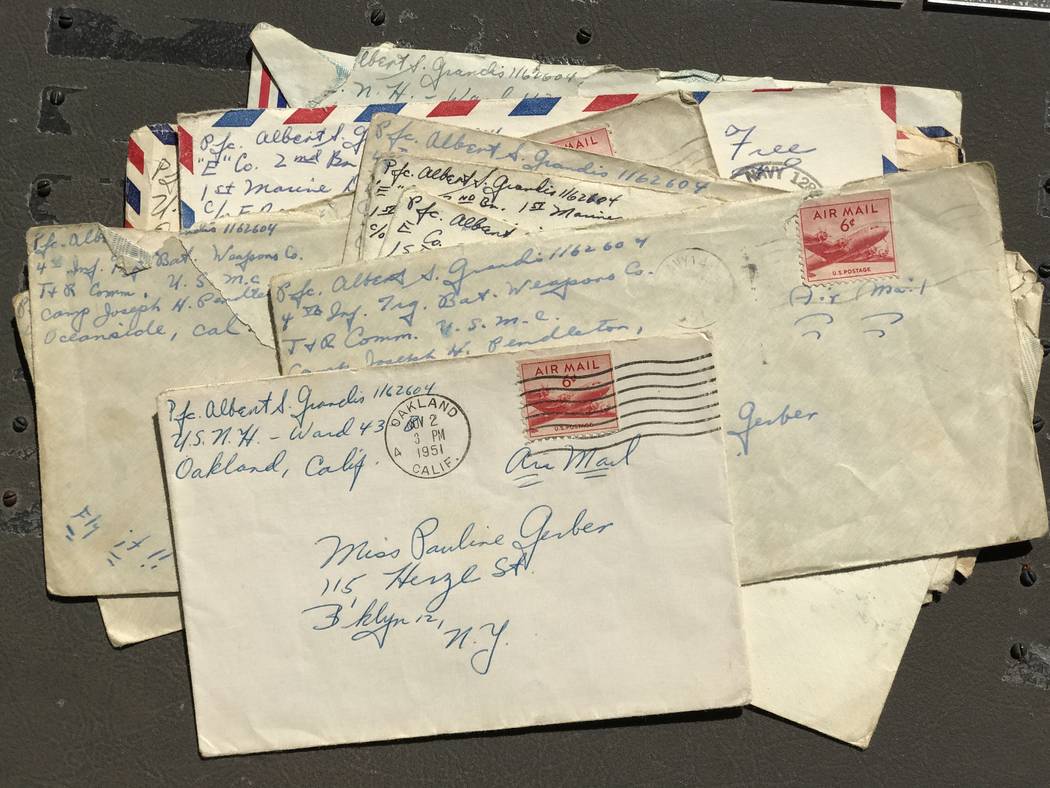 lbert S. Grandis 1162604
N. H. - Ward 43
Pfc. Albert S. G
"E" Co. 2nd Bn
1st Marine D
c/o F.
Free
NAVY 128
MAIL
Pfc. Albert S. Grandis 1162604
Pfc. Albert S. Grandis 1162604
"E" 2nd Bn. 1st Marine
1st
c/o
Pfc. Albert
E Co.
1st
Pfc. Alb ndis 1162604
4th Inf. Bat. Weapons Co.
T&R Comm, U.S.M.C.
Camp Joseph H. Pendle
Oceanside, Cal
Fly it!!
Pfc. Albert S. Grandis 1162604
4th Inf. Trg. Bat. Weapons Co.
T&R Comm. U.S.M.C.
Camp Joseph H. Pendleton,
AIR MAIL
6¢
U.S. POSTAGE
Air Mail
Gerber
Pfc. Albert S. Grandis 1162604
U.S.N.H. - Ward 43B
Oakland, Calif.
OAKLAND
NOV 2
3 PM
1951
A CALIF.
AIR MAIL
6¢
U.S. POSTAGE
Air Mail
Miss Pauline Gerber
115 Herzl St.
B'klyn 12,
N.Y.